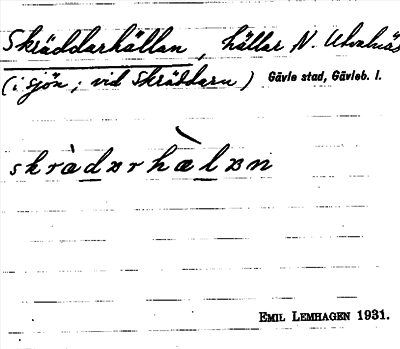 Skräddarhällan, hällar N. Utvalnäs
(i sjön; vid Skräddarn) Gävle stad, Gävleb. l.
skràdɐrhæ̀lɐn
EMIL LEMHAGEN 1931.